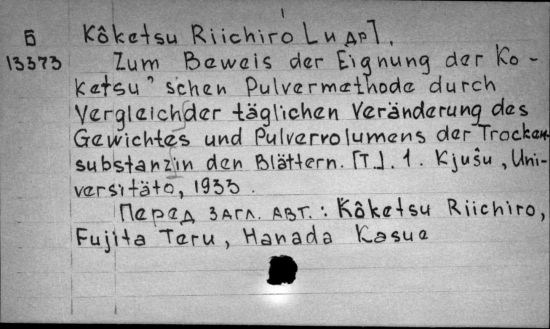 Б
13373
Kôketsu Riichiro [и др].
Zum Beweis der Eignung der Ko-
ketsu"schen Pulvermethode durch
Vergleich der täglichen Veränderung des
Gewichtes und Pulvervolumens der Trocken
substanz in den Blättern. [T.]. 1. Kjuŝu, Uni-
versitäto, 1933.
Перед загл. авт.: Kôketsu Riichiro,
Fujita Teru, Hanada Kasue